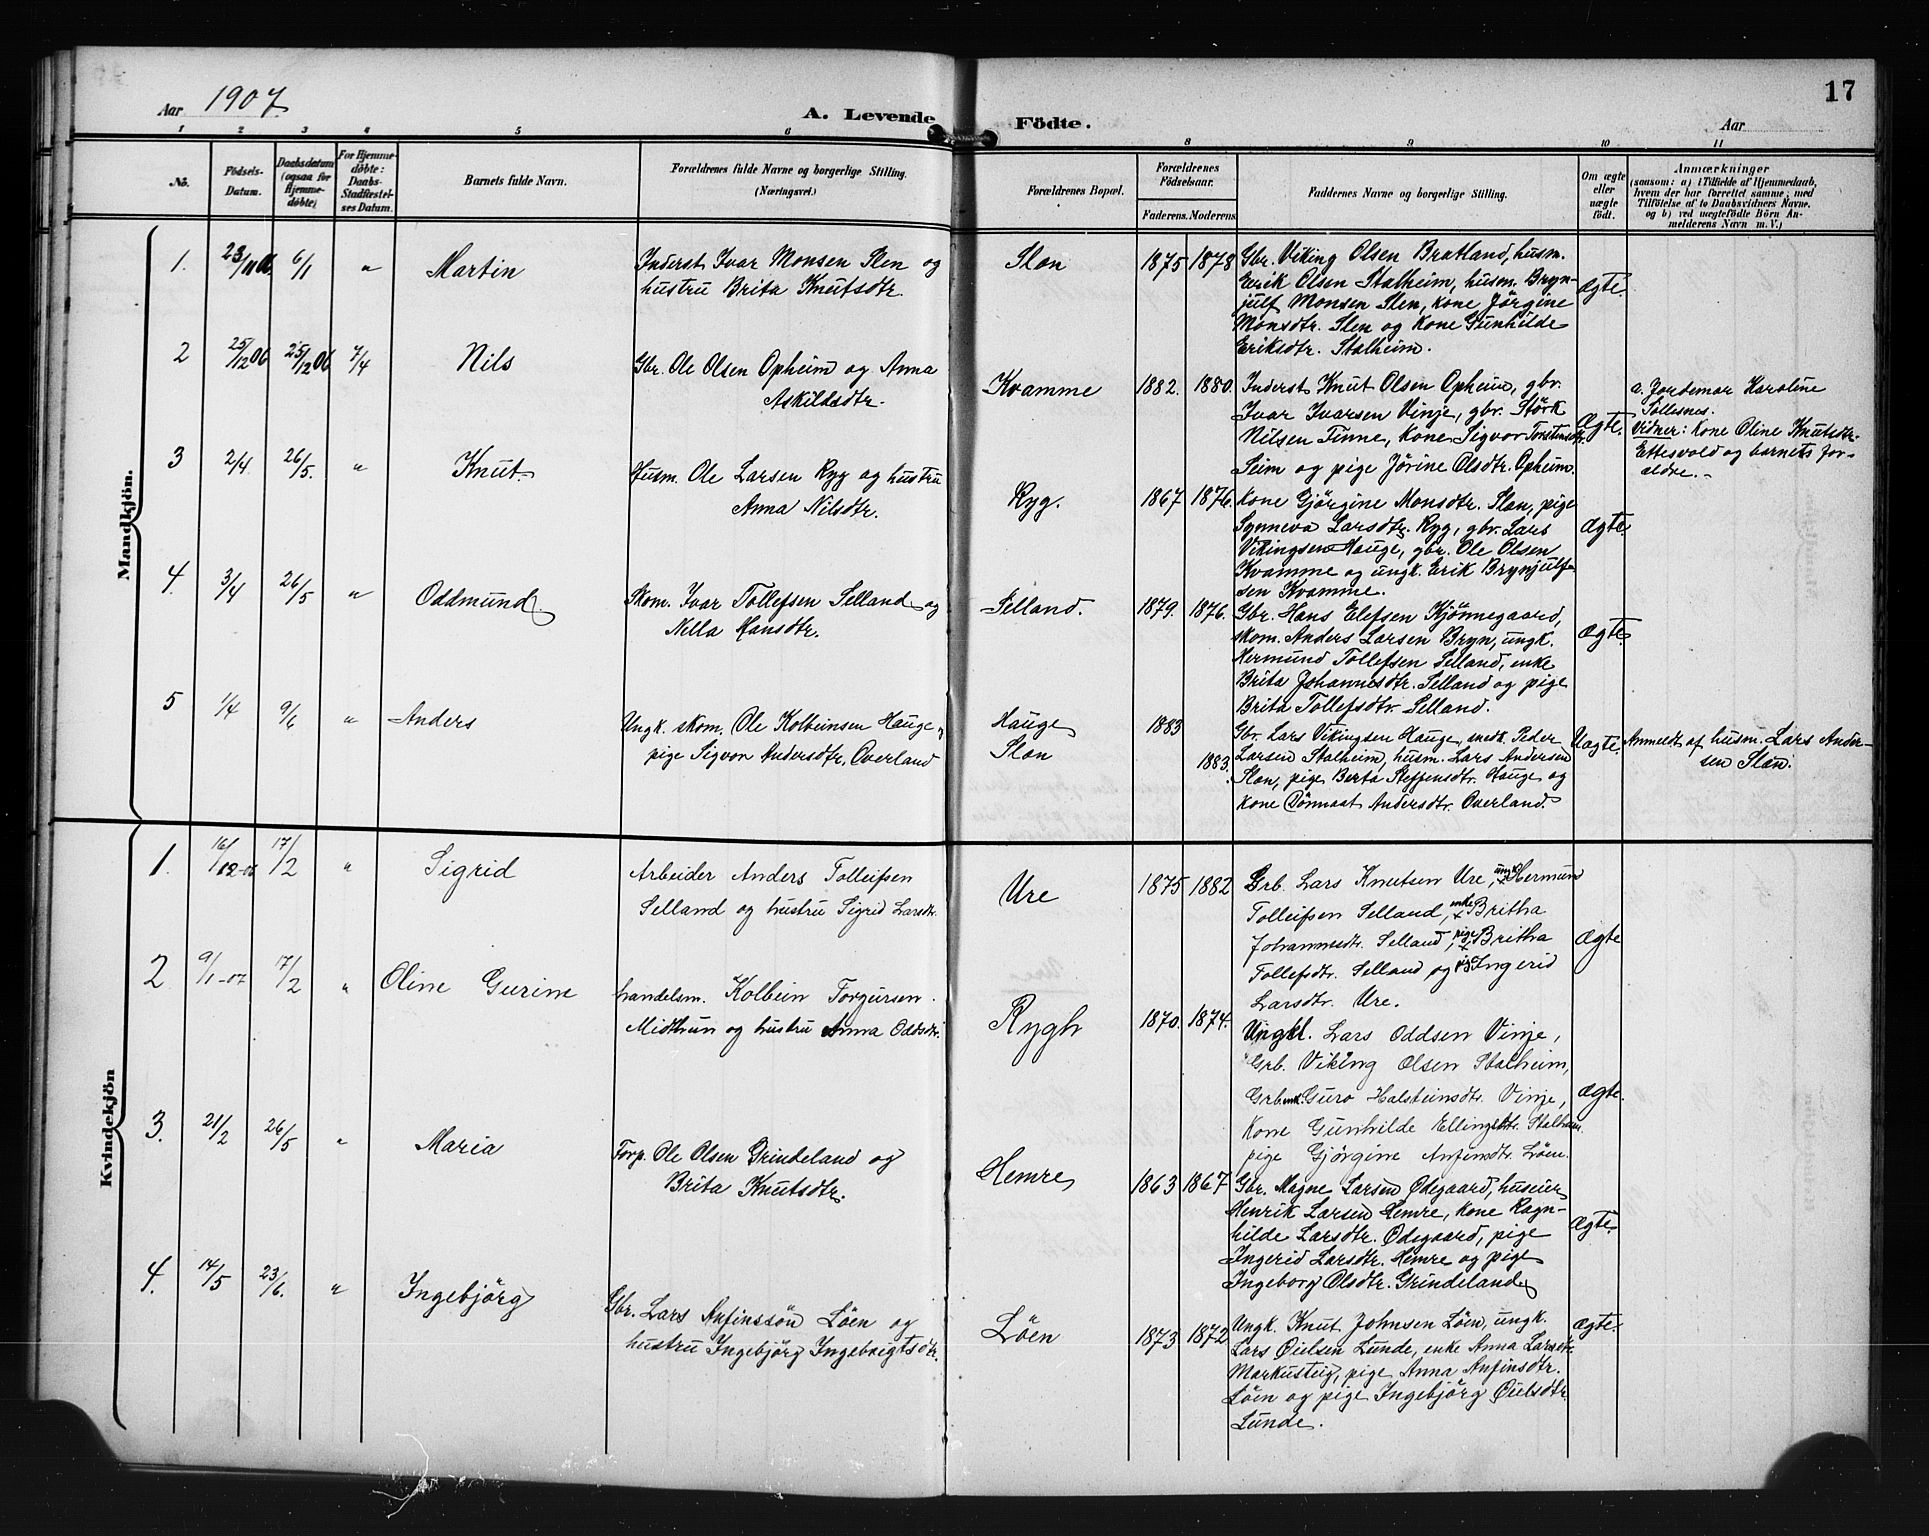 17
Aar 1907.
A. Levende
Födte.
Aar
1 2 3 4 5 6 8 9 10 11
No.
Födsels-
Datum.
Daabsdatum
(ogsaa for
Hjemme-
döbte)
For Hjemme-
döbte:
Daabs-
Stadfæstel-
ses Datum.
Barnets fulde Navn.
Forældrenes fulde Navne og borgerlige Stilling.
(Næringsvei.)
Forældrenes Bopæl.
Forældrenes
Födselsaar.
Faderens. Moderens.
Faddernes Navne og borgerlige Stilling.
Om ægte
eller
uægte
födt.
Anmærkninger
(saasom: a) i Tilfælde af Hjemmedaab,
hvem der har forrettet samme, med
Tilföielse af to Daabsvidners Navne.
og b) ved uægtefödte Börn An-
melderens Navn m. V.)
Mandkjön.
1. 23/11 06 6/1 " Martin
Inderst Ivar Monsen Slen og
hustru Brita Knutsdtr.
Slon 1875 1878
Gbr. Viking Olsen Bratland, husm.
Erik Olsen Stalheim, husm. Bryn-
julf Monsen Slen, kone Jörgine
Monsdtr. Slen og kone Gunhilde
Eriksdtr. Stalheim.
Ægte.
2 25/12 06 25/12 06 7/4 Nils
Gbr. Ole Olsen Opheim og Anna
Askildsdtr.
Kvamme 1882. 1880.
Inderst Knut Olsen Opheim, gbr.
Ivar Ivarsen Vinje, gbr. Störk
Nilsen Tinne, kone Sigvor Torstensdtr.
Seim og pige Jörine Olsdtr. Opheim.
Ægte.
a. Jordemor Karoline
Tollesnes.
Vidner: kone Oline Knutsdtr.
Ettesvold og barnets for-
ældre.
3 2/4. 26/5. " Knut.
Husm. Ole Larsen Ryg og hustru
Anna Nilsdtr.
Ryg. 1867 1876.
Kone Gjörgine Monsdtr. Slon, pige
Synneva Larsdtr. Ryg, gbr. Lars
Vikingsen Hauge, gbr. Ole Olsen
Kvamme og ungk. Erik Brynjulf-
sen Kvamme.
Ægte.
4. 3/4 26/5 " Oddmund.
Skom. Ivar Tollefsen Selland og
Nilla Hansdtr.
Selland. 1879. 1876.
Gbr. Hans Elefsen Kjönnegaard,
skom. Anders Larsen Bryn, ungk.
Hermund Tollefsen Selland, enke
Brita Johannesdtr. Selland og pige
Brita Tollefsdtr. Selland.
Ægte.
5 1/4 9/6 " Anders
Ungk. skom. Ole Kolbeinsen Hauge og
pige Sigvor Andersdtr. Overland
Hauge
Slon
1883
1883.
Gbr. Lars Vikingsen Hauge, snedk. Peder
Larsen Stalheim, husm. Lars Andersen
Slon, pige Berta Steffensdtr. Hauge og
kone Andersdtr. Overland.
Uægte.
Anmeldt af husm. Lars Ander-
sen Slon.
Kvindekjön
1. 16/12-06 17/2 " Sigrid
Arbeider Anders Tolleifsen
Selland og hustru Sigrid Larsdtr.
Ure 1875 1882
Grb. Lars Knutsen Ure, ungk. Hermund
Tolleifsen Selland, enke Britha
Johannesdtr. Selland, pige Britha
Tollefsdtr. Selland og pige Ingerid
Larsdtr. Ure.
Ægte
2 9/1-07 17/2 " Oline Gurine
handelsm. Kolbein Torgersen
Midthun og hustru Anna Oddsdtr.
Rygh 1870. 1874.
Ungkl. Lars Oddsen Vinje,
Grb. Viking Olsen Stalheim,
Grbenk. Guro Halsteinsdtr. Vinje,
Kone Gunhilde Ellingsdtr. Stalheim
pige Gjörgine Anfinsdtr. Löen.
Ægte.
3. 21/2 26/5 " Maria
Forp. Ole Olsen Grindeland og
Brita Knutsdtr.
Hemre 1863 1867
Gbr. Magne Larsen Ødegaard, huseier
Henrik Larsen Hemre, kone Ragn-
hilde Larsdtr. Ødegaard, pige
Ingerid Larsdtr. Hemre og pige
Ingeborg Olsdtr. Grindeland
Ægte.
4. 14/5 23/6. " Ingebjörg
Gbr. Lars Anfinssön Löen og
hustru Ingebjörg Ingebrigtsdtr.
Löen 1873 1872
Ungk. Knut Johnsen Löen, ungk.
Lars Öielsen Lunde, enke Anna Larsdtr.
Markusteig, pige Anna Anfinsdtr.
Löen og pige Ingebjörg Öielsdtr.
Lunde.
Ægte.